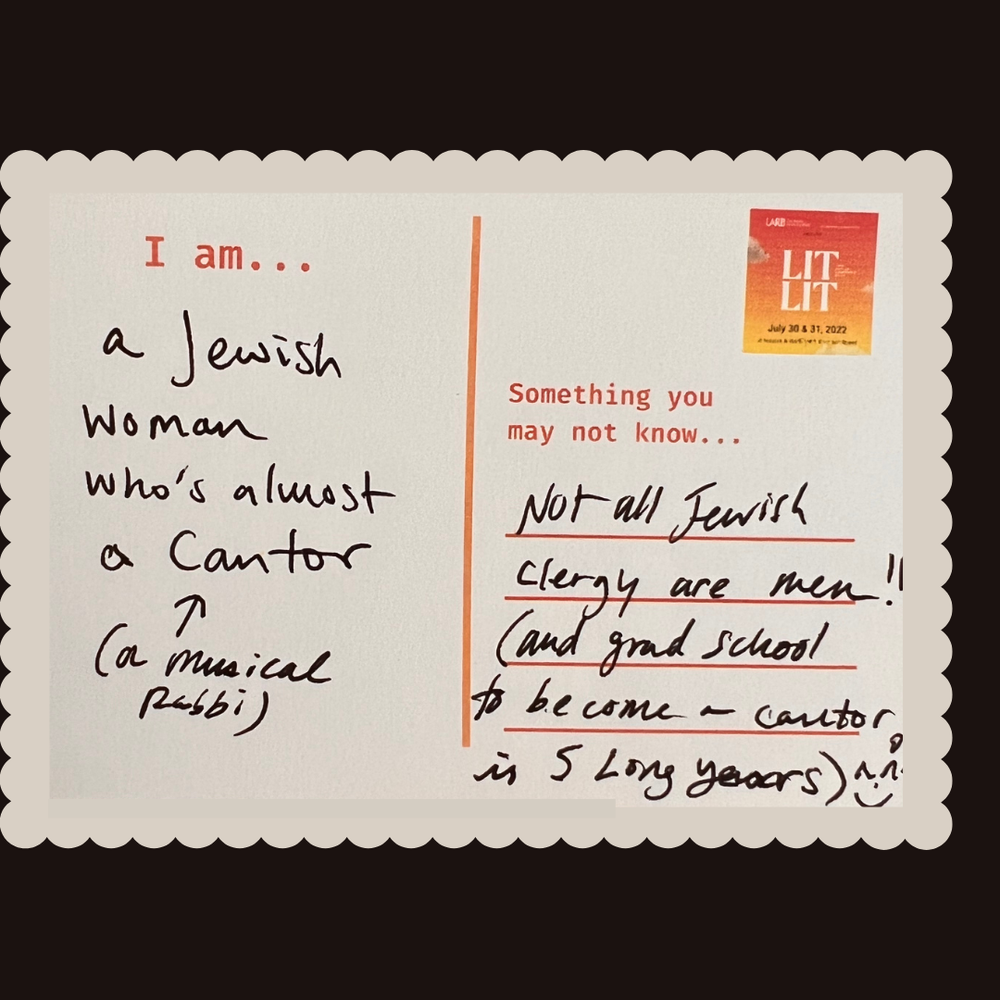 I am...
a Jewish
woman
who's almost
a Cantor
(a musical
Rabbi)
LARB
LIT
LIT
July 30 & 31, 2022
Something you
may not know...
Not all Jewish
clergy are men!!
(and grad school
to become a cantor
is 5 Long years)